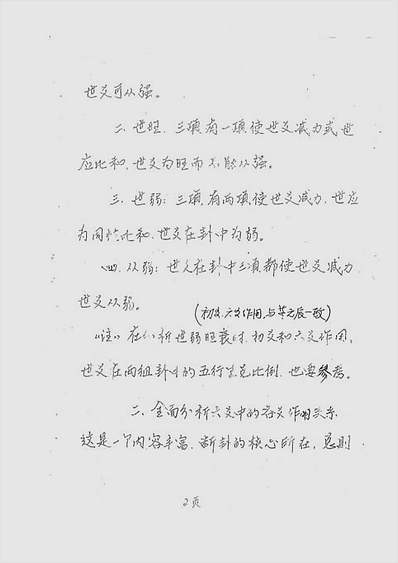 世爻可从强。
二. 世旺. 三项有一项使世爻减力或世
应比和. 世爻为旺而不能从强。
三. 世弱: 三项. 有两项使世爻减力. 世应
为同性比和. 世爻在卦中为弱。
四. 从弱: 世爻在卦中三项都使世爻减力
世爻从弱。
(初爻. 六爻作用. 与其之辰一致)
“注” 在分析世弱旺衰时. 初爻和六爻作用.
世爻在两组卦中的五行生克比例. 也要参考。
二. 全面分析六爻中的各爻作用关系
这是一个内容丰富. 断卦的核心所在. 总则
2页